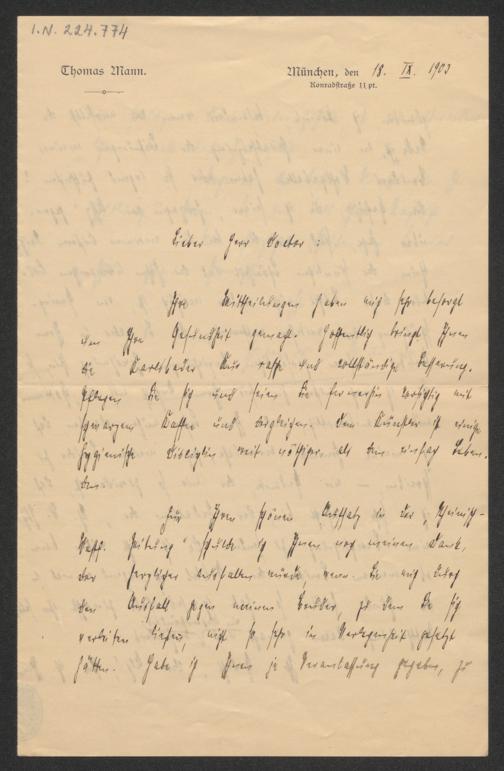 I.N. 224.774
Thomas Mann.
München, den 18. IX. 1903
Konradstraße 11 pt.
Lieber Herr Doctor:
Ihre Mittheilungen haben mich sehr besorgt
um Ihre Gesundheit gemacht. Hoffentlich bringt Ihnen
die Karlsbader Kur rasche und vollständige Besserung.
Pflegen Sie sich und seien Sie fernerhin vorsichtig mit
schwarzem Kaffee und dergleichen. Dem Künstler ist einige
hygienische Disciplin weit nöthiger als dem einfach Leben-
den.
Für Ihren schönen Aufsatz in der „Rheinisch-
Westf. Zeitung“ schulde ich Ihnen noch meinen Dank,
der herzlicher ausfallen würde, wenn Sie mich durch
den Ausfall gegen meinen Bruder, zu dem Sie sich
verleiten ließen, nicht so sehr in Verlegenheit gesetzt
hätten. Habe ich Ihnen je Veranlassung gegeben, zu